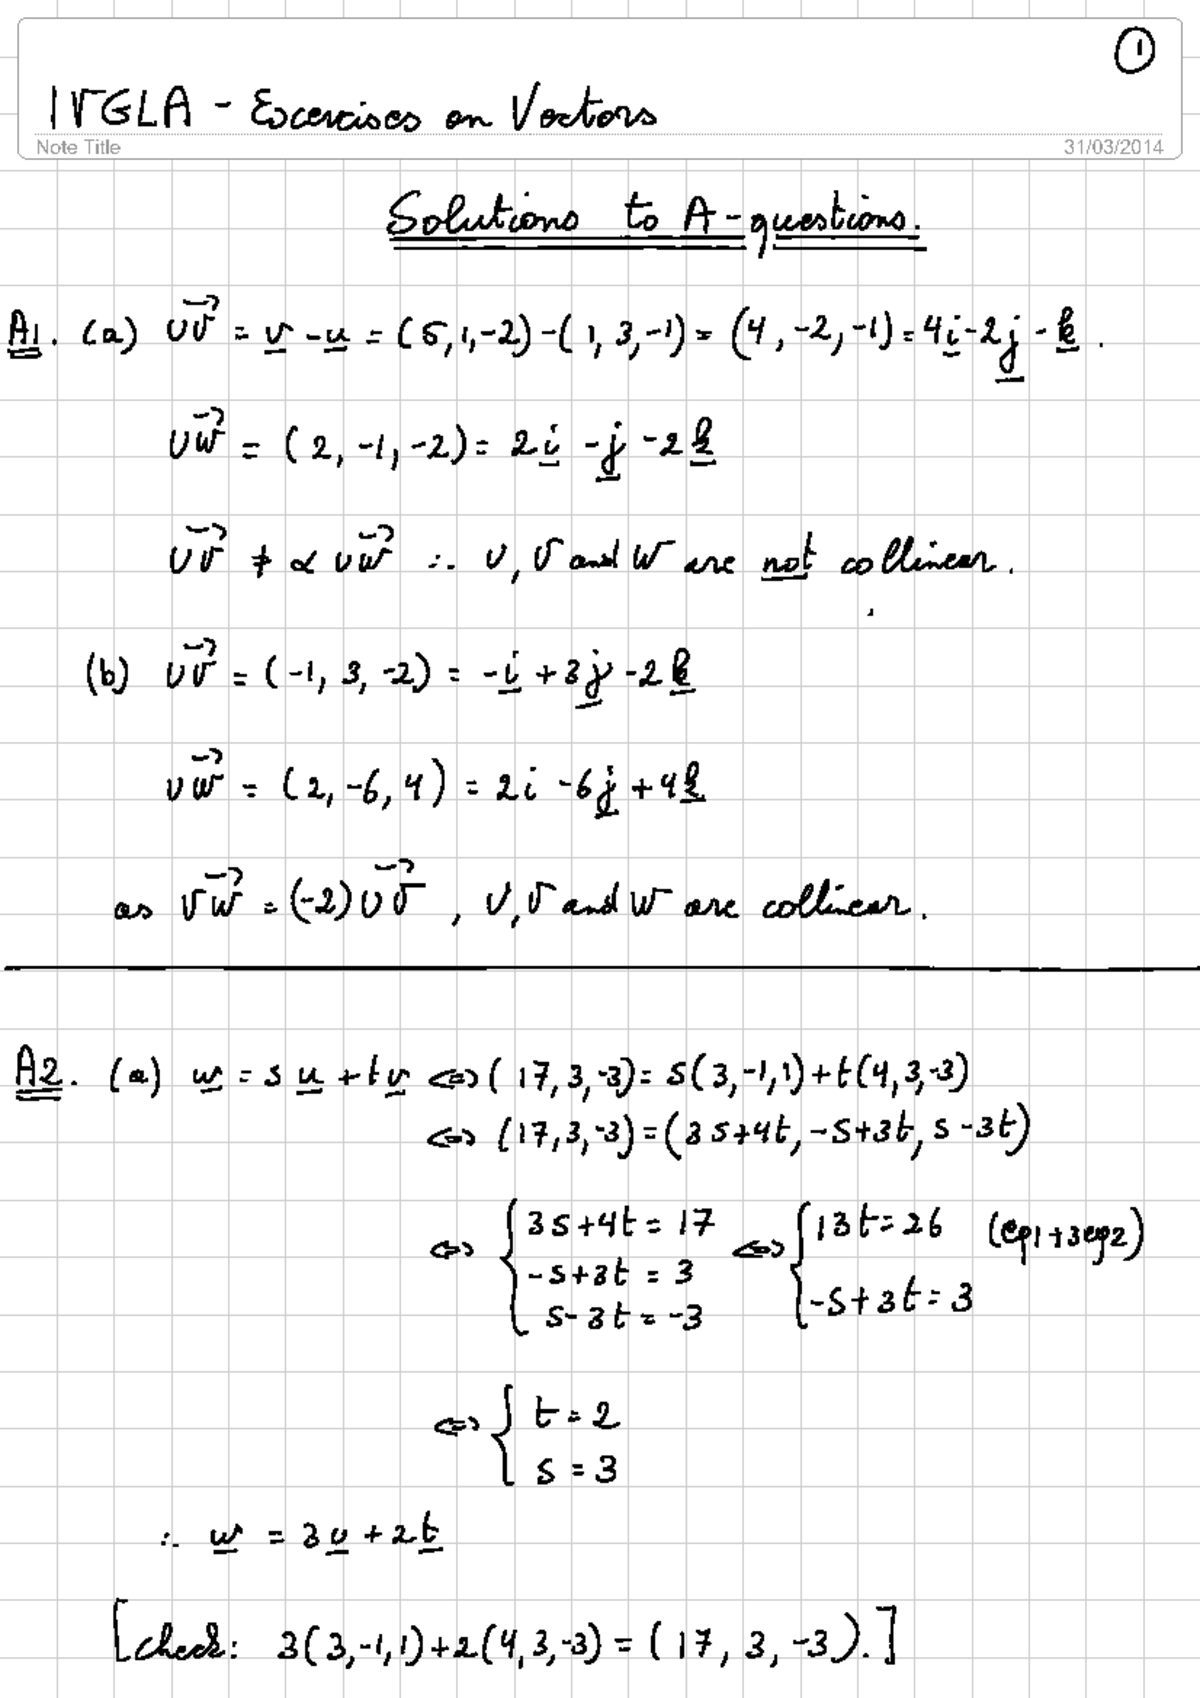 ①
1VGLA - Excercises on Vectors
Note Title 31/03/2014
Solutions to A-questions.
A1. (a) UV⃗ = v - u = (5,1,-2)-(1,3,-1) = (4,-2,-1) = 4i-2j-k.
UW⃗ = (2,-1,-2) = 2i -j -2k
UV⃗ ≠ α UW⃗ ∴ U, V and W are not collinear.
(b) UV⃗ = (-1, 3, -2) = -i +3j -2k
UW⃗ = (2,-6,4) = 2i -6j +4k
as VW⃗ = (-2)UV⃗, U,V and W are collinear.
A2. (a) w = s u + t v ⇔ (17,3,-3) = s(3,-1,1)+t(4,3,-3)
⇔ (17,3,-3) = (3s+4t, -s+3t, s-3t)
⇔ { 3s+4t = 17 ⇔ { 13t = 26 (eq1+3eq2)
-s+3t = 3
-s+3t = 3
s-3t = -3
⇔ { t = 2
s = 3
∴ w = 3u + 2t
[check: 3(3,-1,1)+2(4,3,-3) = (17, 3, -3).]